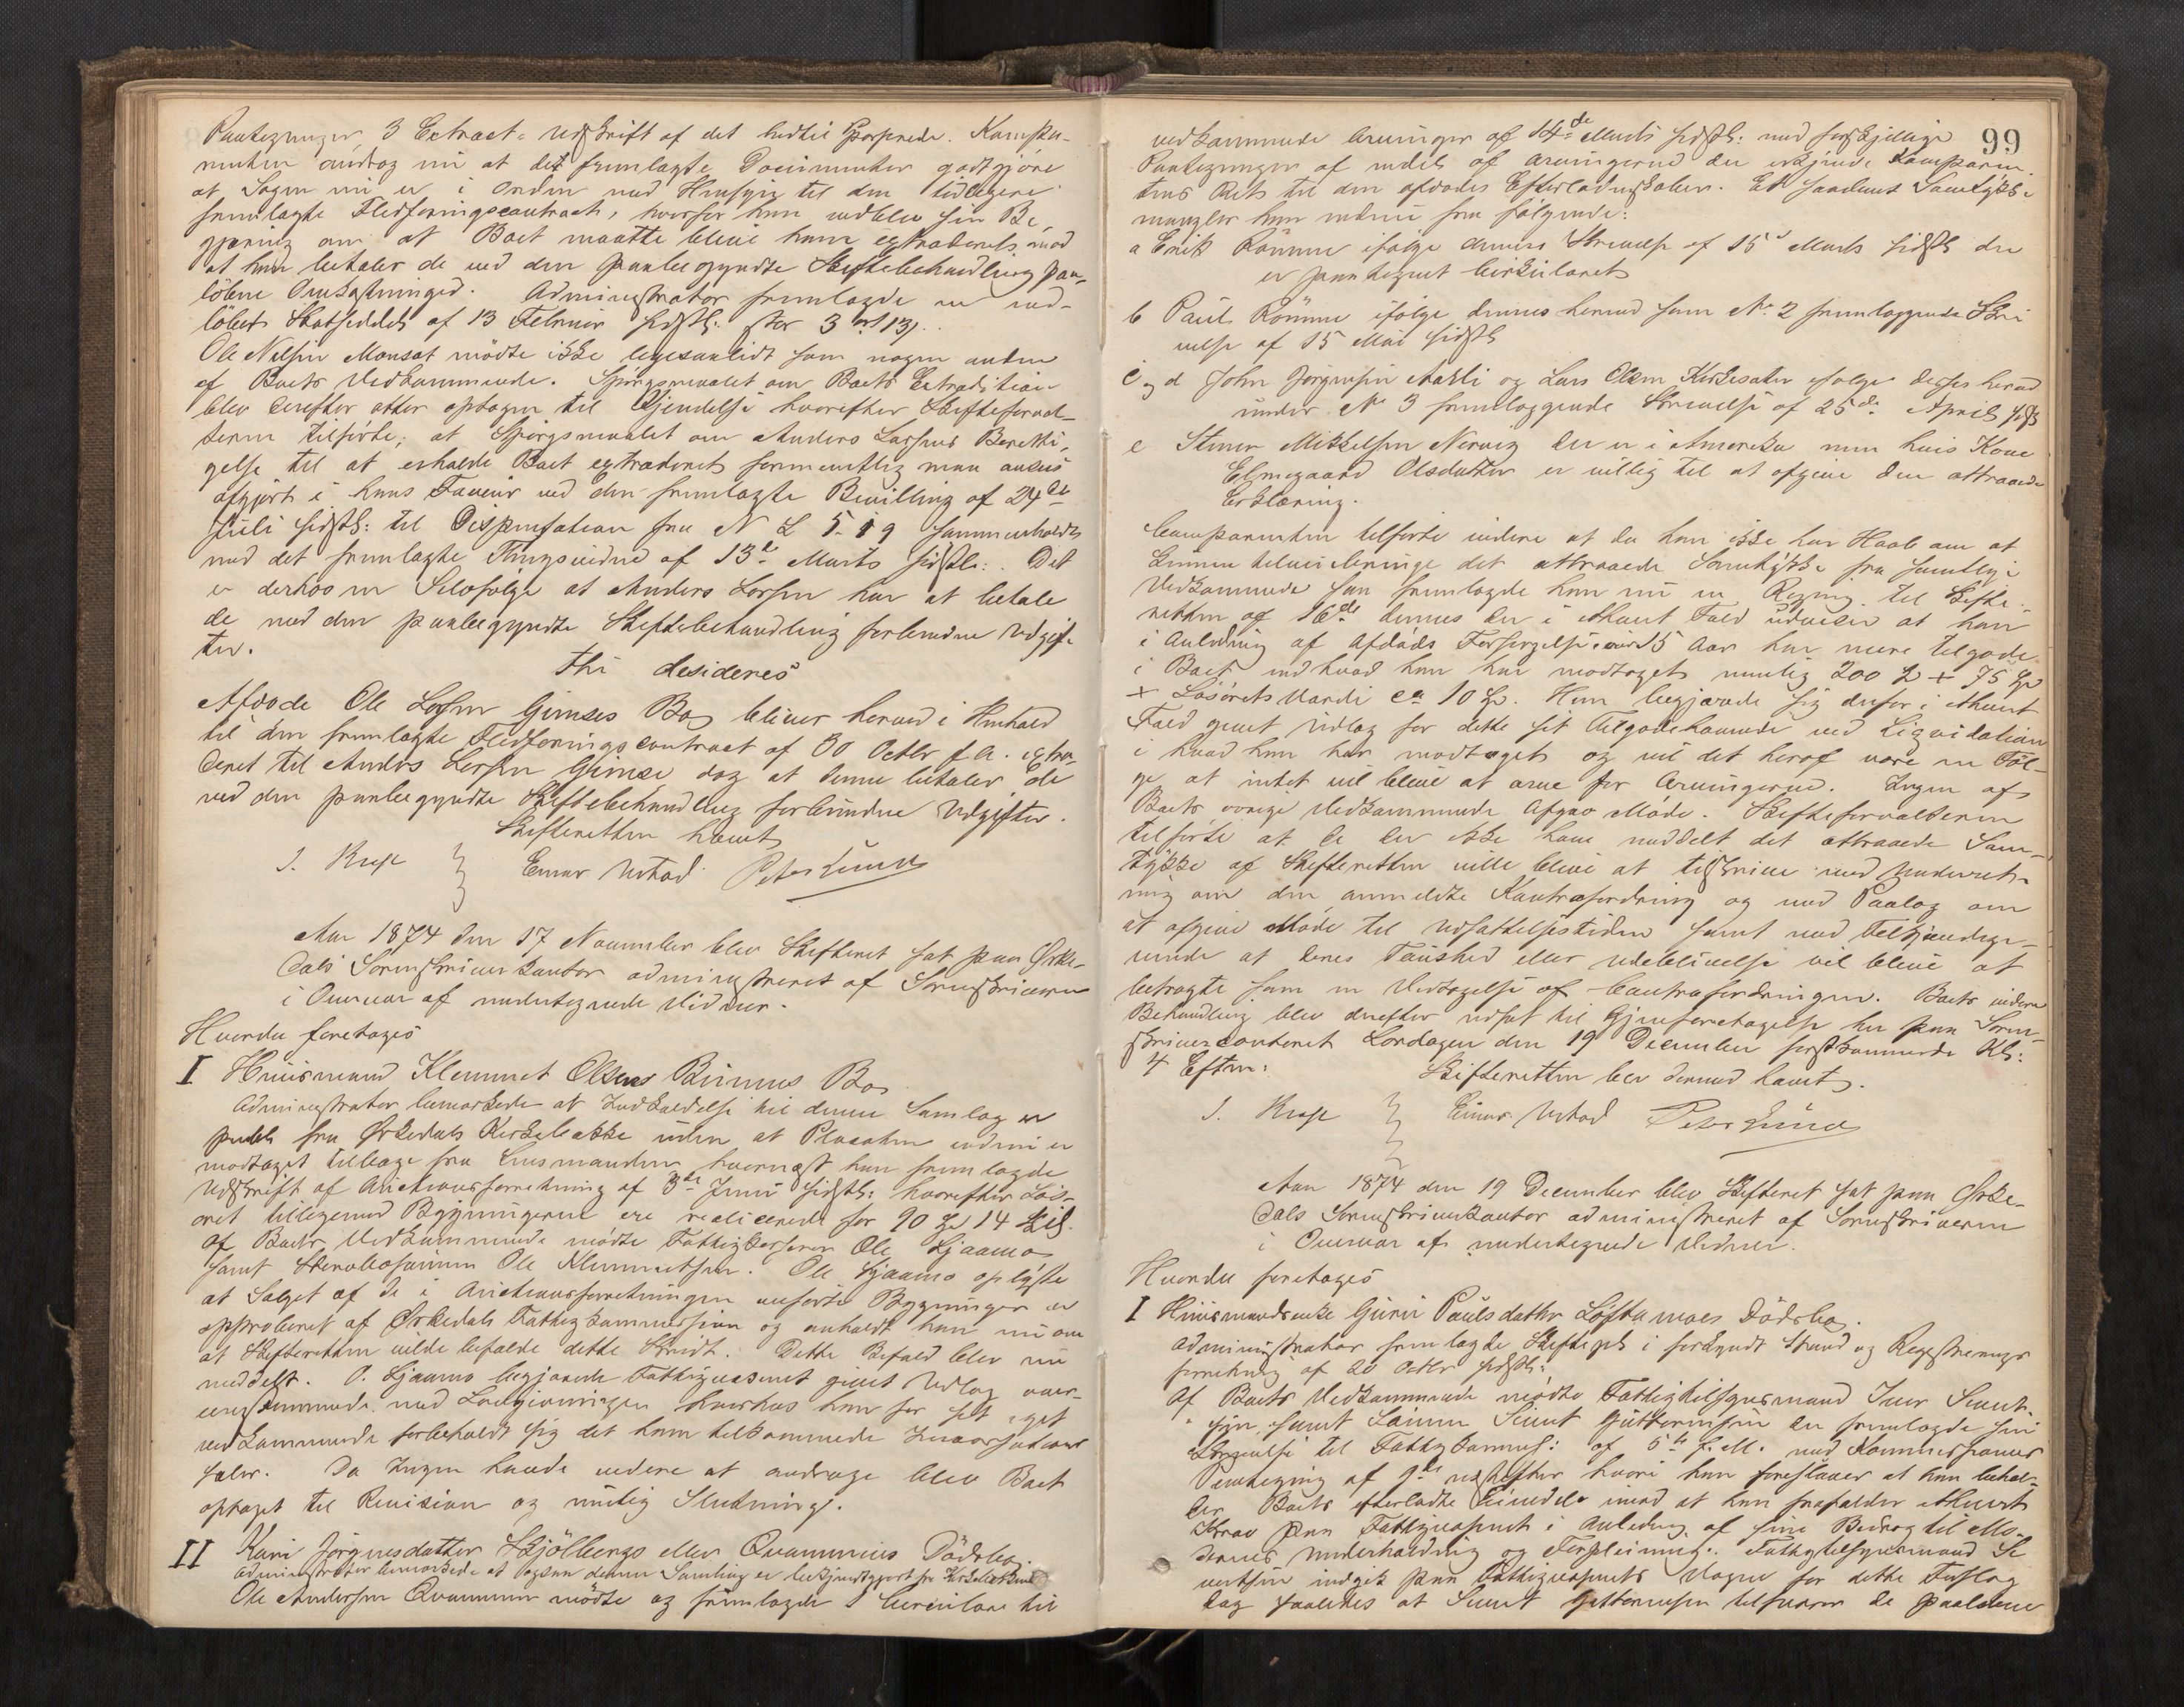 Paategninger, 3 Extract-Udskrift af det hidtil Passerede. Kompa-
renten androg nu at det fremlagte Documenter godtgjöre
at Sagen nu er i Orden med Hensyn til den tidligere
fremlagte Fledföringscontract, hvorfor han indblev sin Be-
gjæring om at Boet maatte blive ham extraderet mod
at han betaler de ved den paabegyndte Skiftebehandling paa-
löbne Omkostninger. Administrator fremlagde en ind-
löbet Skatseddel af 13 Februar sidstl: stor 3 ort 13 s.
Ole Nilsen Monsat mödte ikke ligesaalidt som nogen anden
af Boets Vedkommende. Spörgsmaalet om Boets Extradition
blev derefter atter optagen til Kjendelse hvorefter Skifteforval-
teren tilförte; at Spörgsmaalet om Anders Larsens Beretti-
gelse til at erholde Boet extraderet formentlig maa ansees
afgjort i hans Faveur ved den fremlagte Bevilling af 24de
Juli sidstl: til Dispensation fra N L 5-1-9 sammenholdt
med det fremlagte Thingsvidne af 13de Marts sidstl:. Det
er derhos en Selvfölge at Anders Larsen har at betale
de med den paabegyndte Skiftebehandling forbundne Udgif-
ter.
Thi decideres
Afdöde Ole Larsen Gimses Bo bliver herved i Henhold
til den fremlagte Fledföringscontract af 30 Octbr f.A. extra-
deret til Anders Larsen Gimse dog at denne betaler de
ved den paabegyndte Skiftebehandling forbundne Udgifter.
Skifteretten hævet
J. Krag Einar Ustad Peter Lund
Aar 1874 den 17 November blev Skifteret sat paa Orke-
dals Sorenskriverkontor administreret af Sorenskriveren
i Overvær af undertegnede Vidner.
Hvorda foretoges
I Huusmand Klemmet Olsens Bo
Administrator bemærkede at Indkaldelse til denne Samling er
sendt fra Orkedals Kirkebakke uden at Placaten endnu er
modtaget tilbage fra Lensmanden, hvornæst han fremlagde
Udskrift af Auctionsforretning af 3die Juni sidstl: hvorefter Lös-
öret tilligemed Bygningerne ere realiserede for 90 Spd 14 Skil.
Af Boets Vedkommende mödte Fattigkasserer Ole Ljaamo
samt Stervbosönnen Ole Klemmetsen. Ole Ljaamo oplyste
at Salget af de i Auctionsforretningen anförte Bygninger er
approberet af Orkedals Fattigkommission og anholdt han nu om
at Skifteretten vilde befalde dette Skridt. Dette Bifald blev nu
meddelt. O. Ljaamo begjærede Fattigvæsenet givet Udlæg over-
eensstemmende med Lovgivningen hvorhos han for sit eget
vedkommende forbeholdt sig det ham tilkommende Incassations
salær. Da Ingen havde videre at andrage blev Boet
optaget til Revision og mulig Slutning.
II Kari Jörgensdatter Skjölbergs eller Qvammens Dödsbo.
Administrator bemærkede at ogsaa denne Samling er bekjendtgjort fra Kirkebakken
Ole Andersen Qvammen mödte og fremlagde 1 Circulære til
99
vedkommende Arvinger af 14de Marts sidstl: med forskjellige
Paategninger af endel af Arvingerne der erkjende Komparen-
tens Ret til den afdödes Efterladenskaber. Et saadant Samtykke
mangler han endnu fra fölgende:
a Erik Römme ifölge dennes Skrivelse af 15de Marts sidstl der
er paategnet Cirkulæret
b Paul Römme ifölge dennes herved som No 2 fremlæggende Skri-
velse af 15 Mai sidstl
c og d John Jörgensen Aasli og Lars Olsen Kirkesæter ifölge disses herved
under No 3 fremlæggende Skrivelse af 25de April sidstl
e Stener Mikkelsen Nervig der er i Amerika men hvis Kone
Olsdatter er villig til at afgive den attraaede
Erklæring.
Comparenten tilförte videre at da han ikke har Haab om at
kunne tilveiebringe det attraaede Samtykke fra samtlige
Vedkommende saa fremlagde han nu en Regning til Skifte-
retten af 16de dennes der i Ahvert Fald udviser at han
i Anledning af Afdödes Forsörgelse i over 15 Aar har mere tilgode
i Boet end hvad han har modtaget nemlig 200 Spd + 75 Spd
+ Lösörets Værdi ca 10 Spd. Han begjærede sig derfor i Ahvert
Fald givet Udlæg for dette sit Tilgodehavende ved Liqvidation
i hvad han har modtaget og vil det heraf være en Föl-
ge at intet vil blive at arve for Arvingerne. Ingen af
Boets övrige Vedkommende afgav Möde. Skifteforvalteren
tilförte at de der ikke have meddelt det attraaede Sam-
tykke af Skifteretten ville blive at tilskrive med Underret-
ning om den anmeldte Contrafordring og med Paalæg om
at afgive Möde til Udsættelsestiden samt med Tilkjendegi-
vende at deres Taushed eller Udeblivelse vil blive at
betragte som en Vedtagelse af Contrafordringen. Boets videre
Behandling blev derefter udsat til Gjenforetagelse her paa Soren-
skrivercontoret Lördagen den 19 December förstkommende Kl:
4 Eftm: Skifteretten blev dermed hævet.
J. Krag Einar Ustad Peter Lund
Aar 1874 den 19 December blev Skifteret sat paa Orke-
dals Sorenskriverkontor administreret af Sorenskriveren
i Overvær af undertegnede Vidner.
Hvorda foretoges
I Huusmandsenke Guru Paulsdatter Löftamoes Dödsbo.
Administrator fremlagde Skiftepl: i forkyndt Stand og Registrerings
forretning af 20 Octbr sidstl:
Af Boets Vedkommende mödte Fattigtilsynsmand Iver Sivert-
sen samt Sönnen Sivert Guttormsen der fremlagde sin
Skrivelse til Fattigkommis: af 5te f.M. med Kommissionens
Paategning af 9de næstefter hvori han foreslaaer at han behol-
der Boets efterladte Eiendele imod at han frafalder Ahvert
Krav paa Fattigvæsenet i Anledning af sine Bidrag til Mo-
derens Underholdning og Forpleining. Fattigtilsynsmand Si-
vertsen indgik paa Fattigvæsenets Vegne for dette Forslag
dog saaledes at Sivert Guttormsen tilsvarer de paalöbne